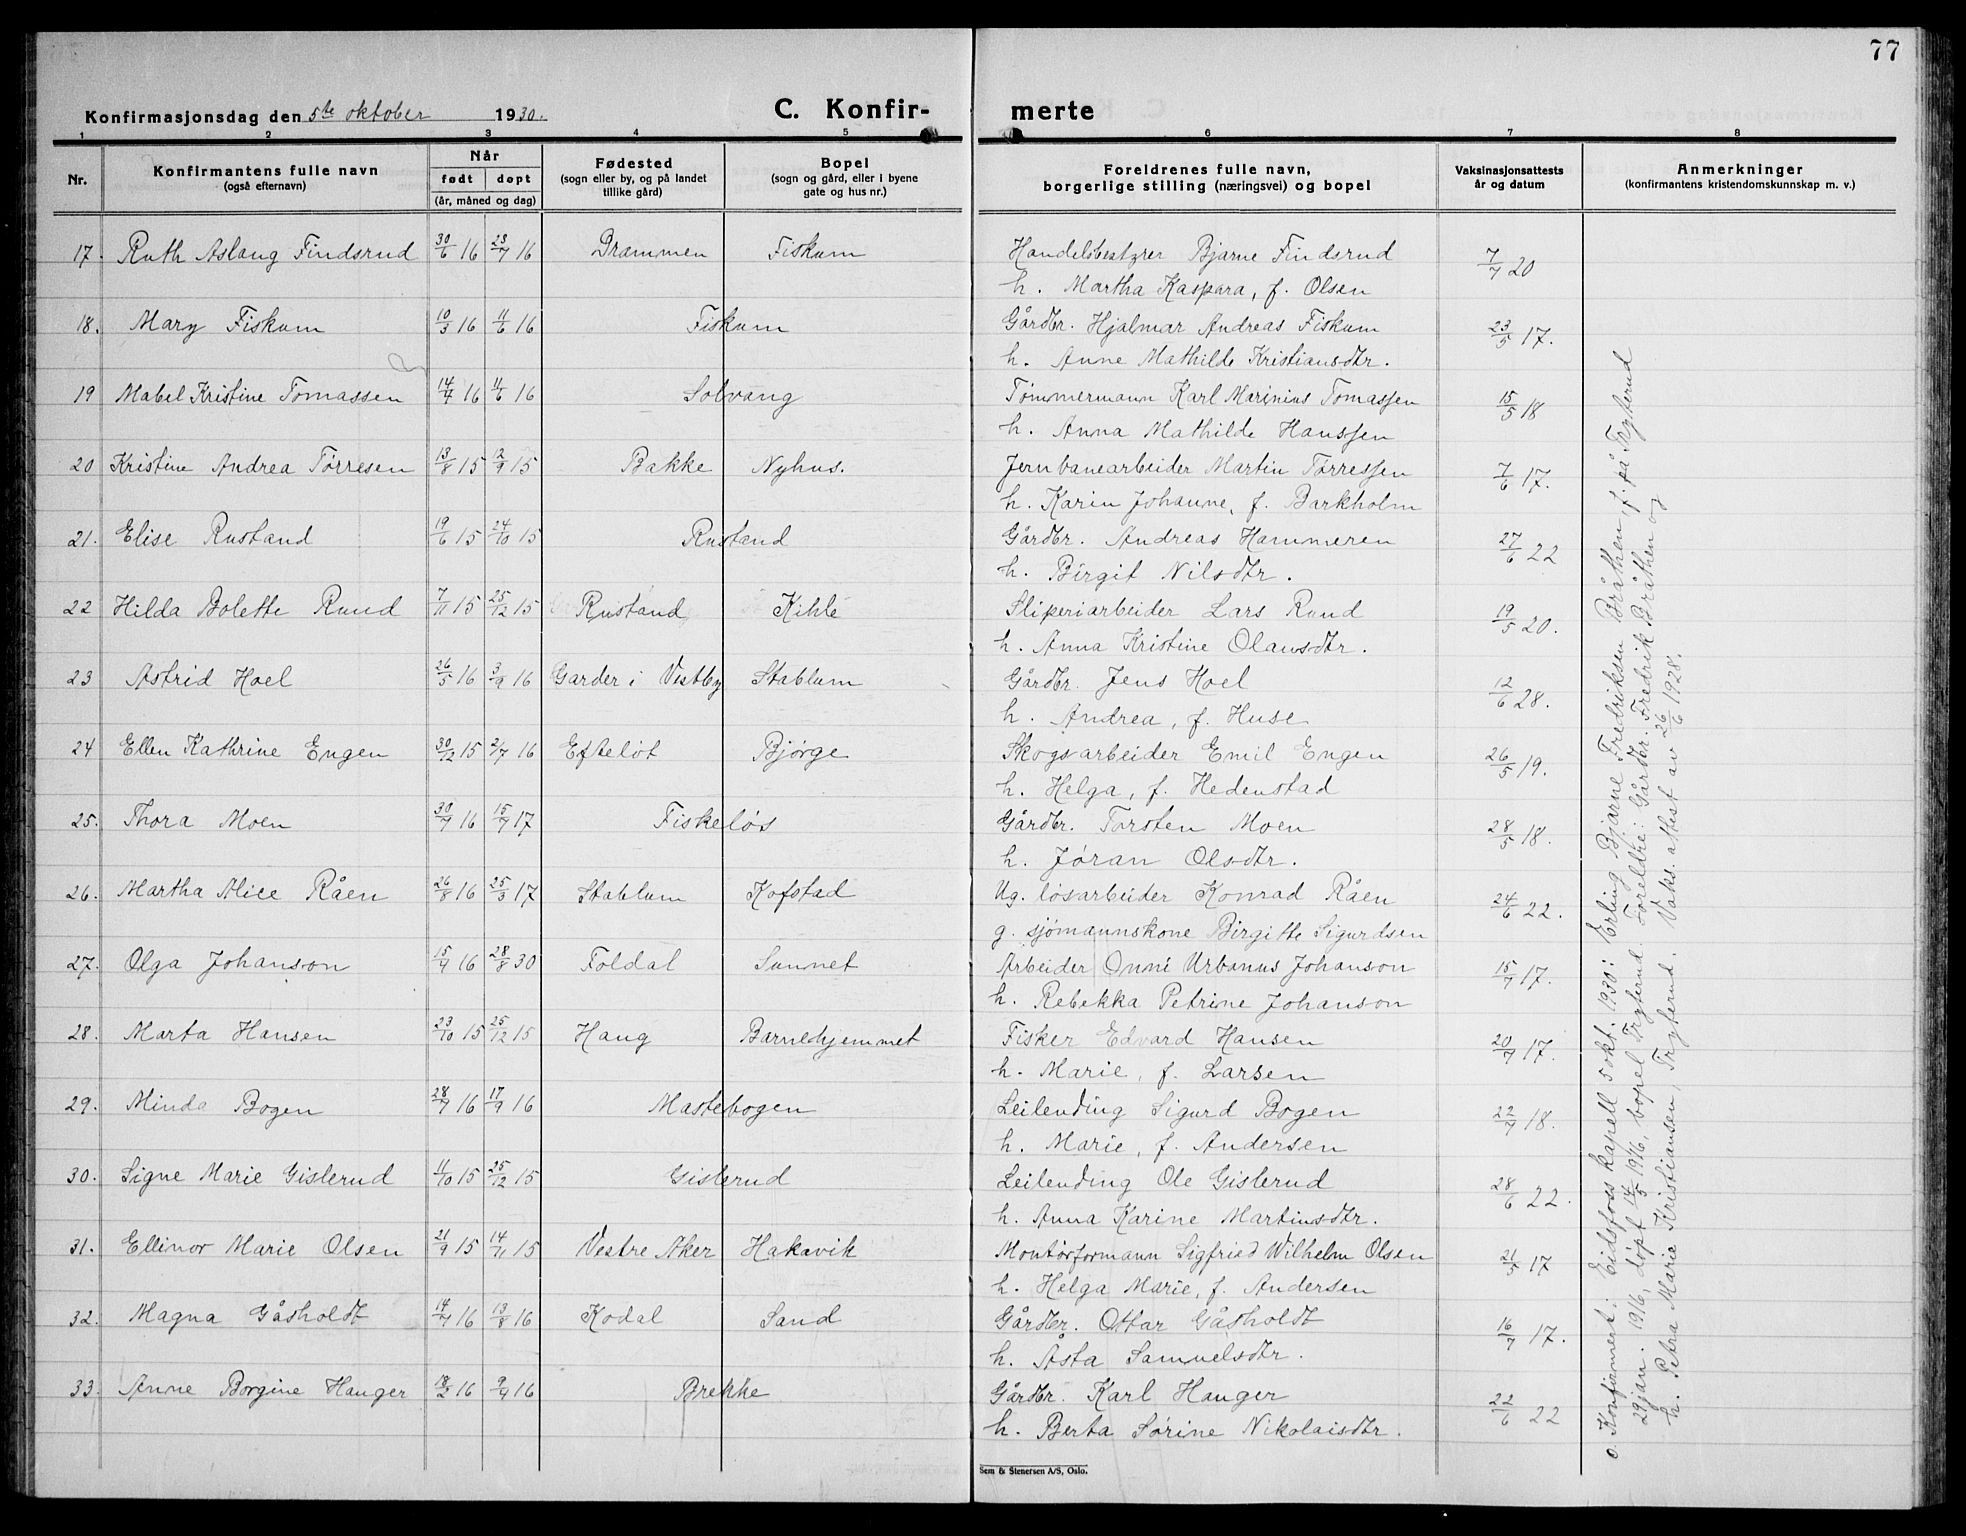 77
Konfirmasjonsdag den 5te oktober 1930.
C. Konfir-
merte
1 2 3 4 5 6 7 8
Nr.
Konfirmantens fulle navn
(også efternavn)
Når
født døpt
(år, måned og dag)
Fødested
(sogn eller by, og på landet
tillike gård)
Bopel
(sogn og gård, eller i byene
gate og hus nr.)
Foreldrenes fulle navn,
borgerlige stilling (næringsvei) og bopel
Vaksinasjonsattests
år og datum
Anmerkninger
(konfirmantens kristendomskunnskap m. v.)
17. Ruth Aslaug Findsrud 30/6 16 23/7 16 Drammen Fiskum Handelsbestyrer Bjarne Findsrud 7/7 20
h. Martha Kaspara, f. Olsen
18. Mary Fiskum 10/3 16 11/6 16 Fiskum Gårdbr. Hjalmar Andreas Fiskum 23/5 17.
h. Anne Mathilde Kristiansdtr.
19 Mabel Kristine Tomassen 14/4 16 11/6 16 Solvang Tømmermann Karl Marinius Tomassen 15/5 18
h. Anna Mathilde Hanssen
20 Kristine Andrea Tørresen 13/8 15 12/9 15 Bakke Nyhus. Jernbanearbeider Martin Tørressen 7/6 17.
h. Karin Johanne, f. Barkholm
21. Elise Rustand 19/6 15 24/10 15 Rustand Gårdbr. Andreas Hammeren 27/6 22
h. Birgit Nilsdtr.
22 Hilda Bolette Rund 7/11 15 25/12 15 Rustand Kihle Sliperiarbeider Lars Rund 19/5 20.
h. Anna Kristine Olausdtr.
23 Astrid Hoel 26/5 16 3/9 16 Garder i Vestby Stablum Gårdbr. Jens Hoel 12/6 28.
h. Andrea, f. Huse
24 Ellen Kathrine Engen 30/12 15 2/7 16 Efteløt Bjørge Skogsarbeider Emil Engen 26/5 19.
h. Helga, f. Hedenstad
25. Thora Moen 30/7 16 15/7 17 Fiskeløs Gårdbr. Torsten Moen 28/5 18.
h. Jøran Olsdtr.
26. Martha Alice Råen 26/8 16 25/3 17 Stablum Kofstad Ug. løsarbeider Konrad Råen 24/6 22.
g. sjømannskone Birgitte Sigurdsen
27. Olga Johanson 15/4 16 28/8 30 Foldal Sunnet Arbeider Onni Urbanus Johanson 15/7 17.
h. Rebekka Petrine Johanson
28. Marta Hansen 23/10 15 25/12 15 Haug Barnehjemmet Fisker Edvard Hansen 20/7 17.
h. Marie, f. Larsen
29. Minda Bogen 28/7 16 17/9 16 Mastebogen Leilending Sigurd Bogen 22/7 18.
h. Marie, f. Andersen
30. Signe Marie Gislerud 11/10 15 25/12 15 Gislerud Leilending Ole Gislerud 28/6 22.
h. Anna Karine Martinsdtr.
31. Ellinor Marie Olsen 21/9 15 14/11 15 Vestre Aker Hakavik Montørformann Sigfried Wilhelm Olsen 21/5 17
h. Helga Marie, f. Andersen
32. Magna Gåsholdt 14/7 16 13/8 16 Kodal Sand Gårdbr. Ottar Gåsholdt 16/7 17.
h. Åsta Samuelsdtr.
33. Anne Borgine Hauger 18/2 16 9/4 16 Brekke Gårdbr. Karl Hauger 22/6 22
h. Berta Sørine Nikolaisdtr.
o. Konfirmert i Eidsfoss kapell 5 okt. 1930: Erling Bjarne Fredriksen Bråthen f. på Tryterud
29 jan. 1916, døpt 14/5 1916, bopel Tryterud. Foreldre: Gårdbr. Fredrik Bråthen og
h. Petra Marie Kristiansen, Tryterud. Vaks. attest av 26/6 1928.
Sem & Stenersen A/S, Oslo.